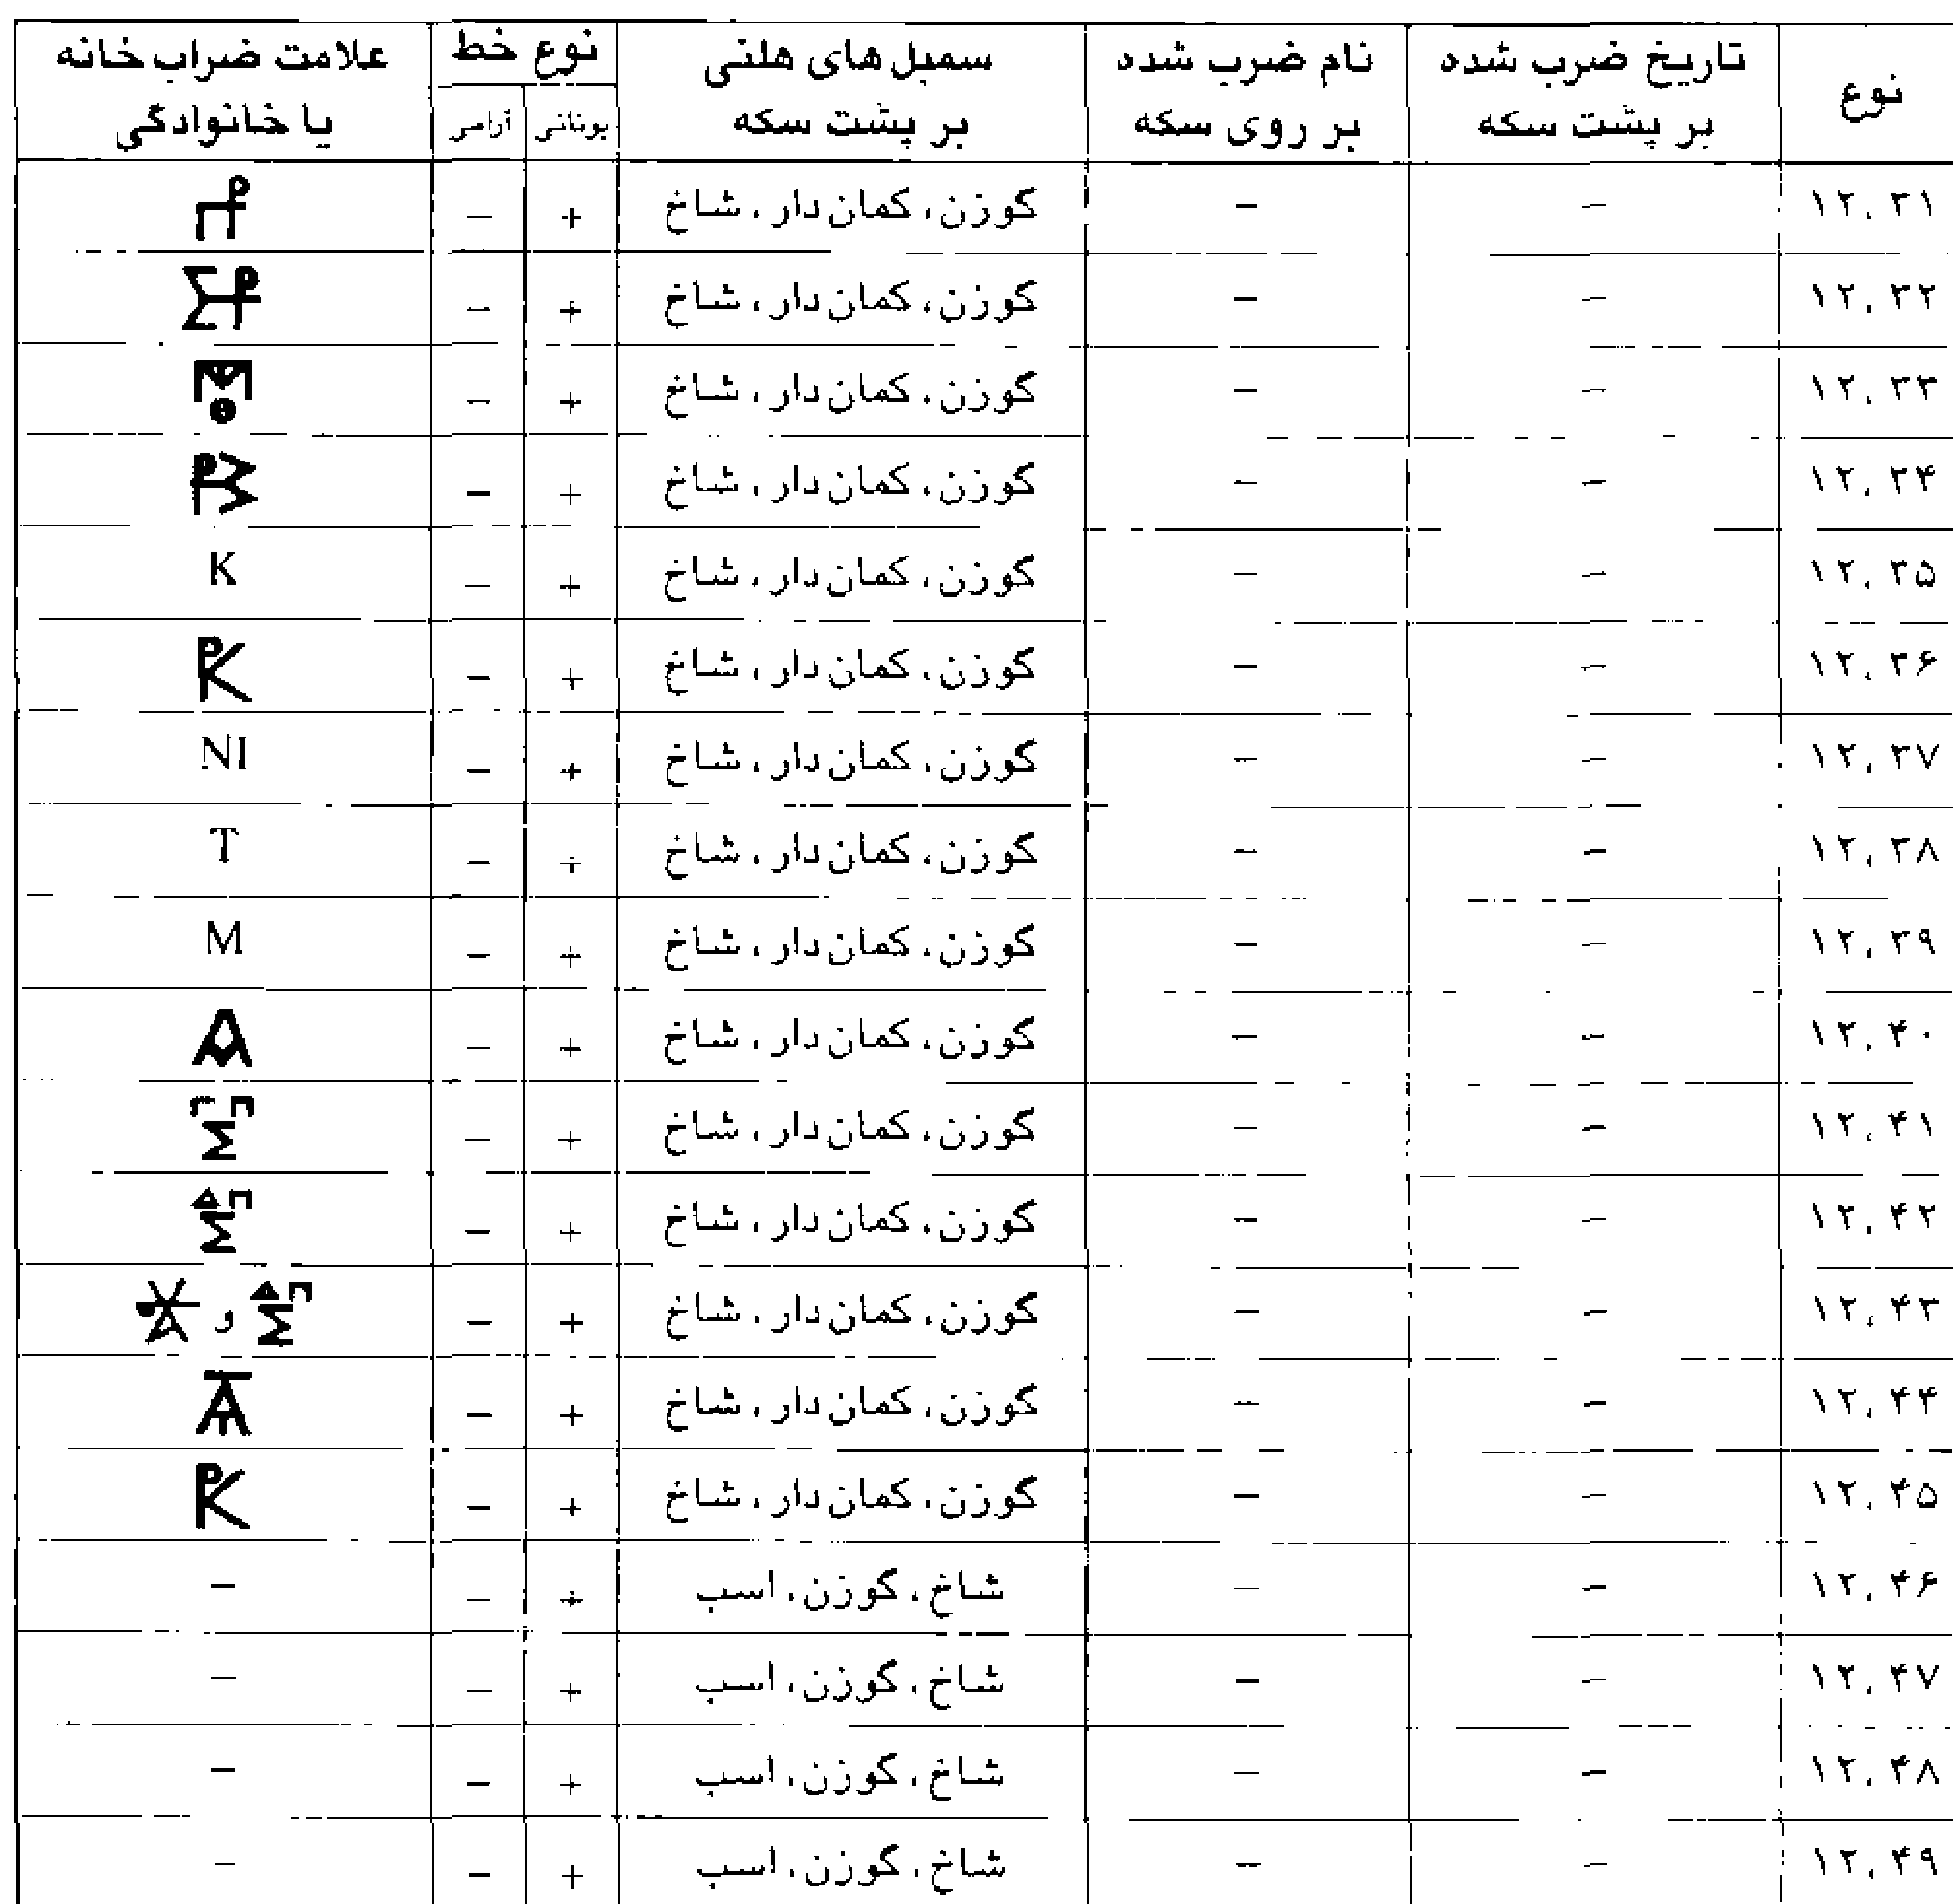 نوع | تاریخ ضرب شده بر پشت سکه | نام ضرب شده بر روی سکه | سمبل های هلنی بر پشت سکه | نوع خط یونانی | آرامی | علامت ضراب خانه یا خانوادگی
۱۲,۳۱ – – گوزن، کمان دار، شاخ + –
۱۲,۳۲ – – گوزن، کمان دار، شاخ + –
۱۲,۳۳ – – گوزن، کمان دار، شاخ + –
۱۲,۳۴ – – گوزن، کمان دار، شاخ + –
۱۲,۳۵ – – گوزن، کمان دار، شاخ + – K
۱۲,۳۶ – – گوزن، کمان دار، شاخ + –
۱۲,۳۷ – – گوزن، کمان دار، شاخ + – NI
۱۲,۳۸ – – گوزن، کمان دار، شاخ + – T
۱۲,۳۹ – – گوزن، کمان دار، شاخ + – M
۱۲,۴۰ – – گوزن، کمان دار، شاخ + –
۱۲,۴۱ – – گوزن، کمان دار، شاخ + –
۱۲,۴۲ – – گوزن، کمان دار، شاخ + –
۱۲,۴۳ – – گوزن، کمان دار، شاخ + – و
۱۲,۴۴ – – گوزن، کمان دار، شاخ + –
۱۲,۴۵ – – گوزن، کمان دار، شاخ + –
۱۲,۴۶ – – شاخ، گوزن، اسب + – –
۱۲,۴۷ – – شاخ، گوزن، اسب + – –
۱۲,۴۸ – – شاخ، گوزن، اسب + – –
۱۲,۴۹ – – شاخ، گوزن، اسب + – –